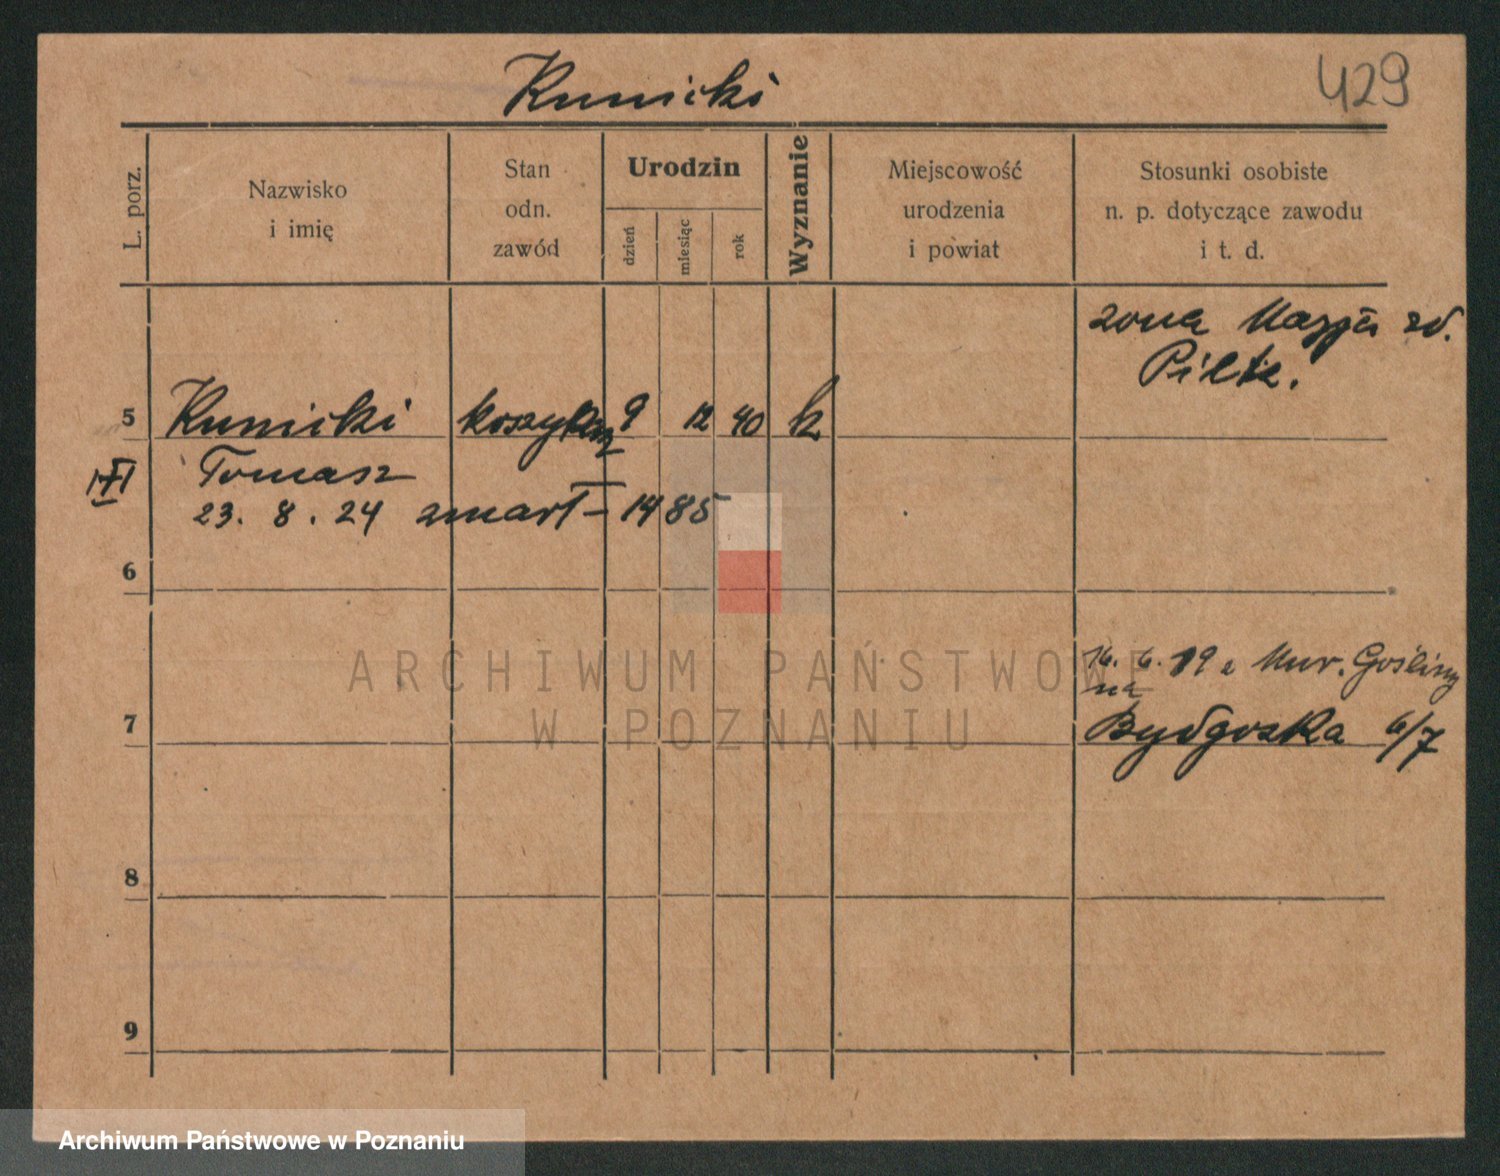 Kunicki
429
L. porz.
Nazwisko
i imię
Stan
odn.
zawód
Urodzin
dzień
miesiąc
rok
Wyznanie
Miejscowość
urodzenia
i powiat
Stosunki osobiste
n. p. dotyczące zawodu
i t. d.
żona Maryja zd.
5 Kunicki 9 12 40 k
Tomasz
23. 8. 24 zmarł - 1485
6
ARCHIWUM PAŃSTWOWE
W POZNANIU
16. 6. 19 z Mur. Gośliny
na
7 Bydgoska 6/7
8
9
Archiwum Państwowe w Poznaniu